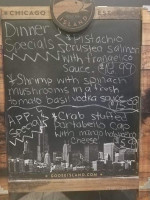 CHICAGO
ISLAND
Dinner Specials
* Pistachio
crusted salmon
with
sauce
* Shrimp with spinach
mushrooms in a fresh
tomato basil
sauce
APP
Specials
* Crab stuffed
portabello Cap
with
Cheese
GOOSEISLAND.COM